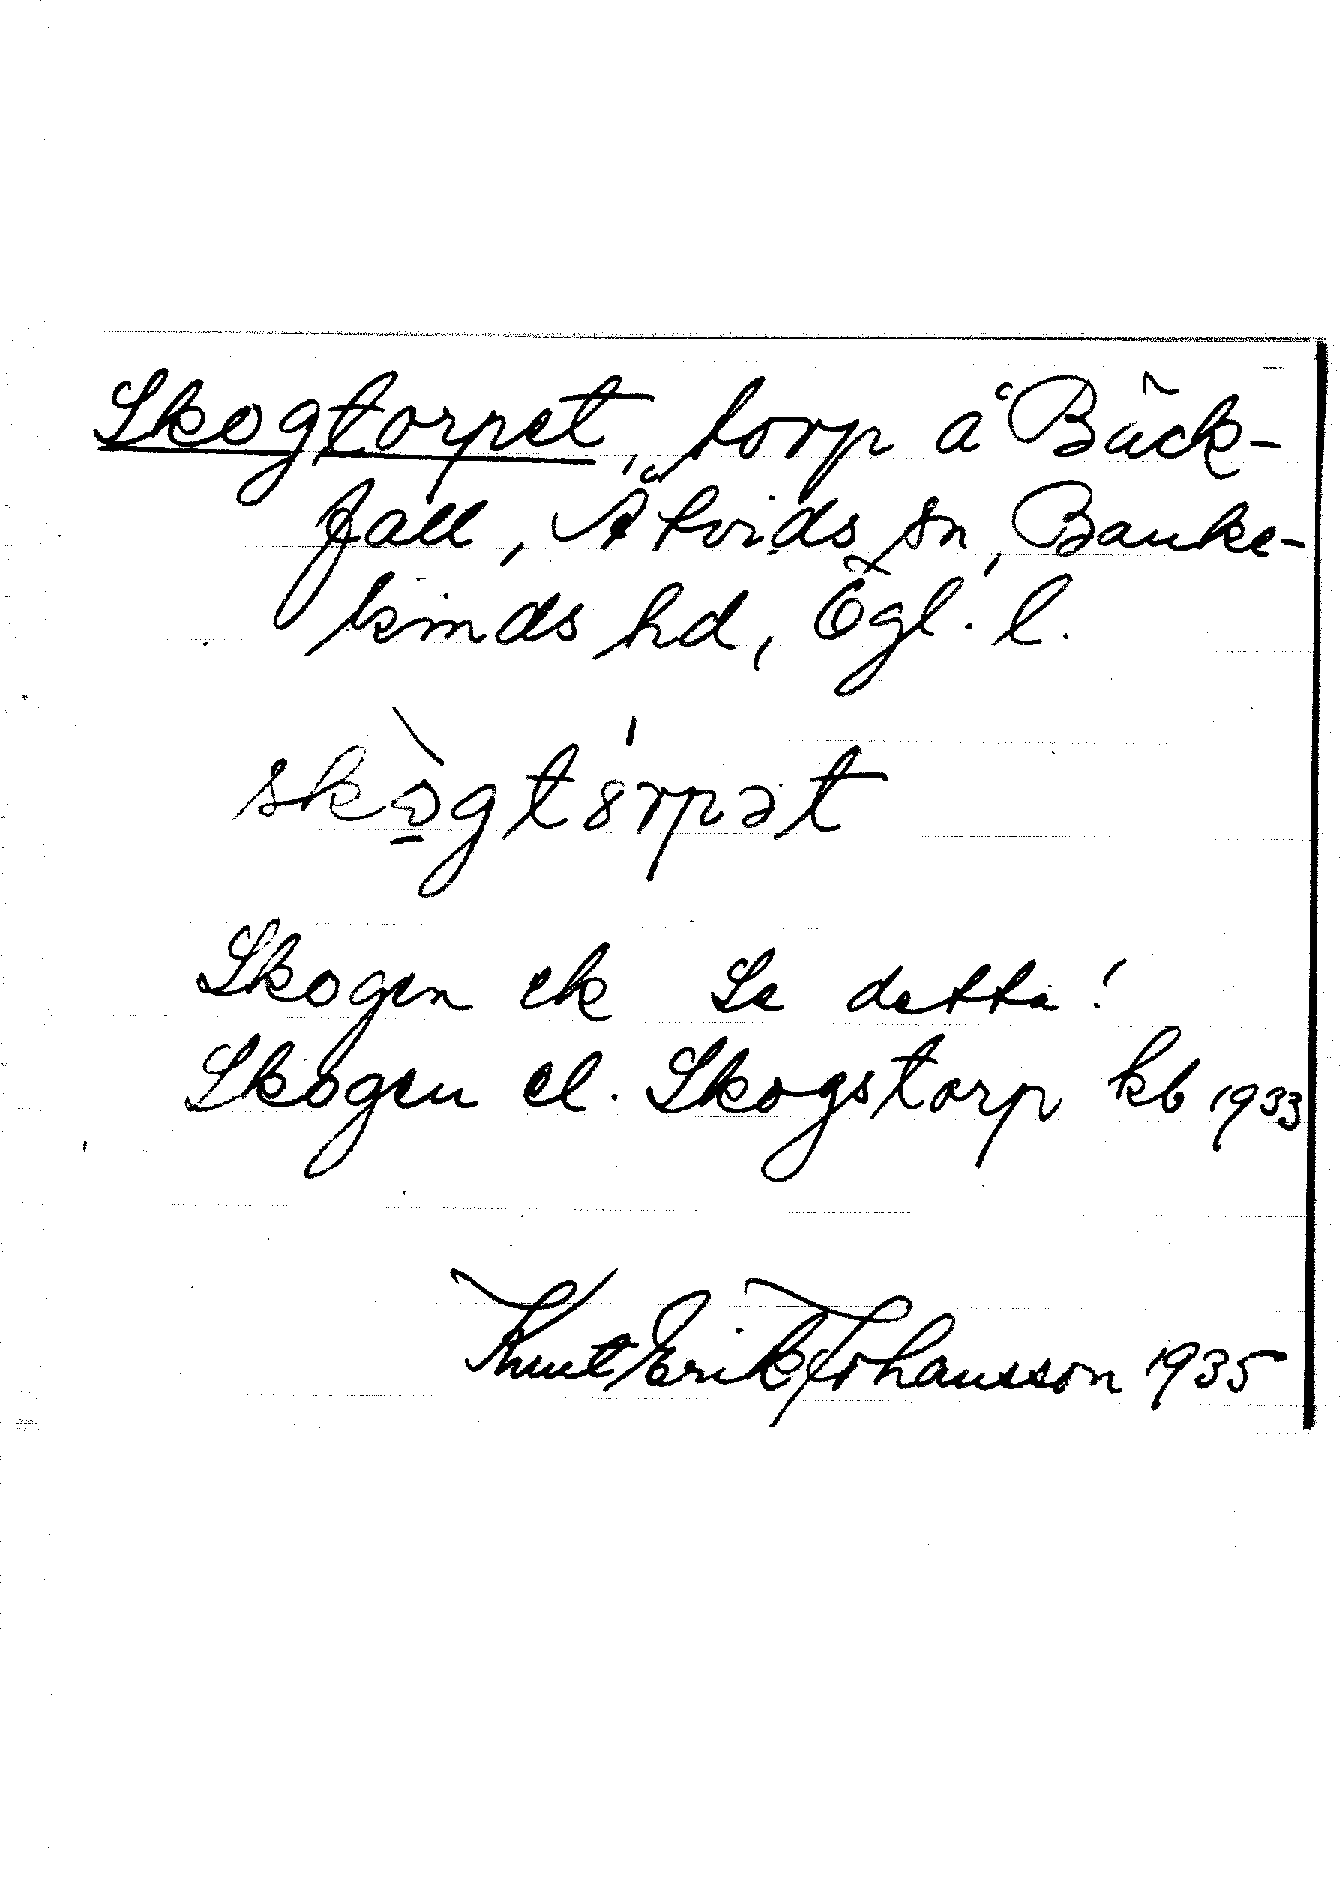 Skogtorpet, torp å Bäck-
fall, Åtvids sn, Banke-
kinds hd, Ögl. l.
skò̱gtȯ́rpət
Skogen ek Se detta!
Skogen el. Skogstorp kb 1933
Knut Erik Johansson 1935